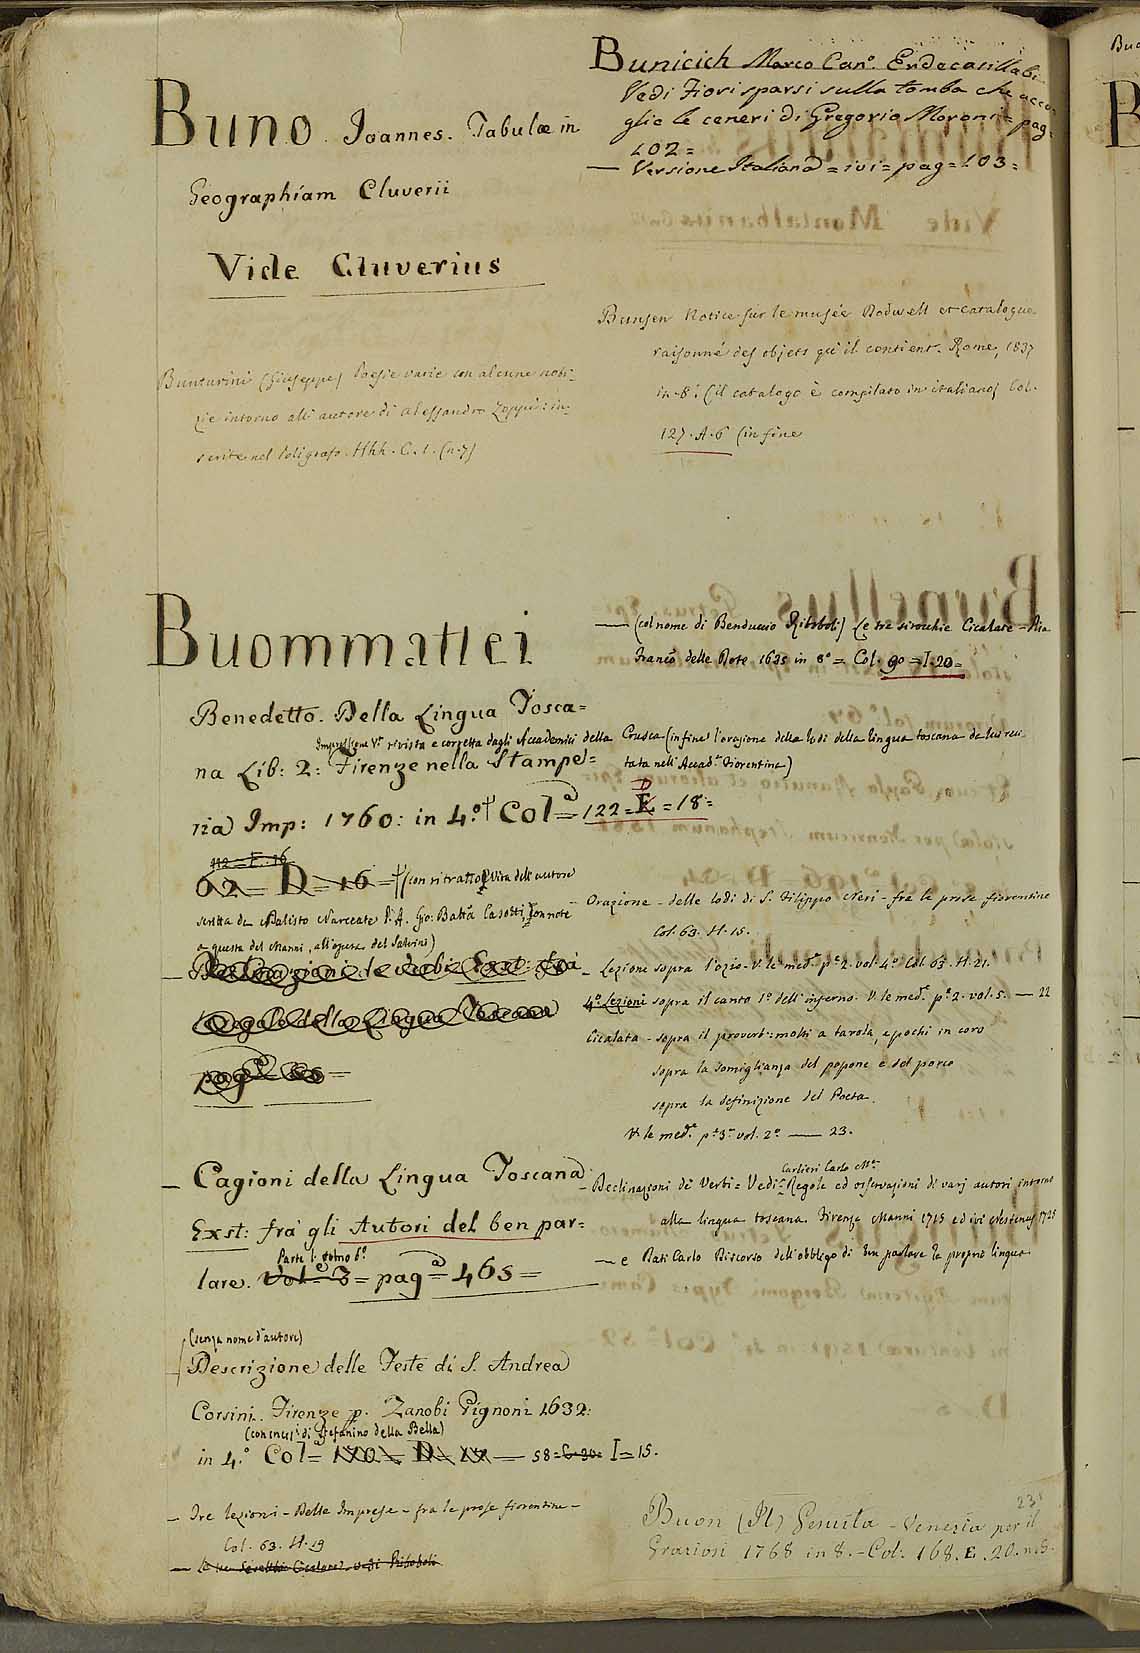 Buno Joannes. Tabulæ in
Geographiam Cluverii
Vide Cluverius
Bunturini (Giuseppe) Poesie varie con alcune noti-
zie intorno all' autore di Alessandro Zoppi: in-
serite nel Poligrafo. Hhh. C. 1. (n. 7)
Buommattei
Benedetto. Della Lingua Tosca=
Impressione Vª rivista e corretta dagli Accademici della Crusca (in fine l'orazione della lodi della lingua toscana da lui reci-
tata nell' Accadª Fiorentina)
na Lib: 2: Firenze nella Stampe=
ria Imp: 1760: in 4.º Colª = 122 = D E = 18 =
112 = E. 16
62 = D = 16 = (con ritratto e Vita dell' autore
scritta da Dalisto Narceate P. A. Gio: Battª Casotti, con note
a questa del Manni, all' opera del Salvini)
Declinazioni de verbi Exst: frà
della Lingua Toscana
pagª
— Cagioni della Lingua Toscana
Exst: frà gli Autori del ben par=
Parte 1. tomo 6º
lare. Vol = 3 = pagª = 465 =
(senza nome d'autore)
— Descrizione delle Feste di S. Andrea
Corsini. Firenze p. Zanobi Pignoni 1632:
(con incisi di Stefanino della Bella)
in 4.º Colª = 170 = D = 17 — 58 = C. 20. I = 15.
— Tre lezioni - Delle Imprese - fra le prose fiorentine -
Col. 63. H. 19
— Le tre Sirocchie Cicalate. vedi Riboboli
Bunicich Marco Canº. Endecasillabi
Vedi Fiori sparsi sulla tomba che acco=
glie le ceneri di Gregorio Moroni = pag:
102 =
— Versione Italiana = ivi = pag = 103 =
Bunsen Notice sur le musée Dodwell et catalogue
raisonné des objets qu'il contient. Rome, 1837
in-8º. (il catalogo è compilato in italiano) Col.
127. A. 6 (in fine
— (col nome di Benduccio Riboboli) Le tre sirocchie Cicalate - Pisa
Francº delle Dote 1635 in 8º = Col. 90 = I. 20 =
Orazione - delle lodi di S. Filippo Neri - fra le prose fiorentine
Col. 63. H. 15.
— Lezione sopra l'ozio - V. le medº. pº 2. vol. 4º. Col. 63. H. 21.
4º. Lezioni sopra il canto 1º dell' inferno. V. le medº. pº 2. vol. 5. — 22
Cicalata - sopra il proverb: molti a tavola, e pochi in coro
sopra la somiglianza del popone e del porco
sopra la definizione del Poeta.
V. le medº. pº 3ª vol. 2º — 23.
Carlieri Carlo Mº.
— Declinazioni de' Verbi = Vedi Regole ed osservazioni di varj autori intorno
alla lingua toscana. Firenze Manni 1715 ed ivi Nestenus 1725
— e Dati Carlo Discorso dell' obbligo di ben parlare la propria lingua
23
Buon (Il) Gesuita - Venezia per il
Graziosi 1768 in 8. - Col. 168. E. 20. n. 3.